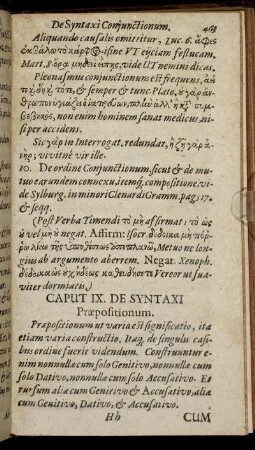 De Syntaxi Conjunctionum. 465
Aliquando causalis omittitur, Luc. 6. ἄφες
ἐκβάλω τὸ κάρφος, sine UT ejiciam festucam.
Matt. 8. ὅρα μηδενὶ εἴπῃς, vide UT nemini dicas.
Pleonasmus conjunctionum est frequens,
& semper & tunc. Plato,
non enim hominem sanat medicus, ni-
si per accidens.
Sic γὰρ in Interrogat. redundat, ἦ ζῇ γὰρ ἀ-
νήρ; vivitne vir ille.
10. De ordine Conjunctionum, sicut & de mu-
tuo earundem connexu, itemq́, compositione, vi-
de Sylburg. in minori Clenardi Gramm. pag. 17.
& seqq.
(Post Verba Timendi τὸ μὴ affirmat: τὸ ὡς
ὐ vel μὴ ὐ negat. Affirm: Isocr. δέδοικα μὴ πόρ-
ρω λίαν τῆς ὑποθέσεως ἀποπλανῶ, Metuo ne lon-
gius ab argumento aberrem. Negat. Xenoph.
δέδοικα ὡς ὐχ ἡδέως καθευδήσετε Vereor ut sua-
viter dormiatis.)
CAPUT IX. DE SYNTAXI
Præpositionum.
Præpositionum ut varia est significatio, ita
etiam varia constructio. Itaq́, de singulis casi-
bus ordine fuerit videndum. Construuntur e-
nim nonnullæ cum solo Genitivo, nonnullæ cum
solo Dativo, nonnullæ cum solo Accusativo. Et
rursum aliæ cum Genitivo & Accusativo, aliæ
cum Genitivo, Dativo, & Accusativo.
Hh CUM